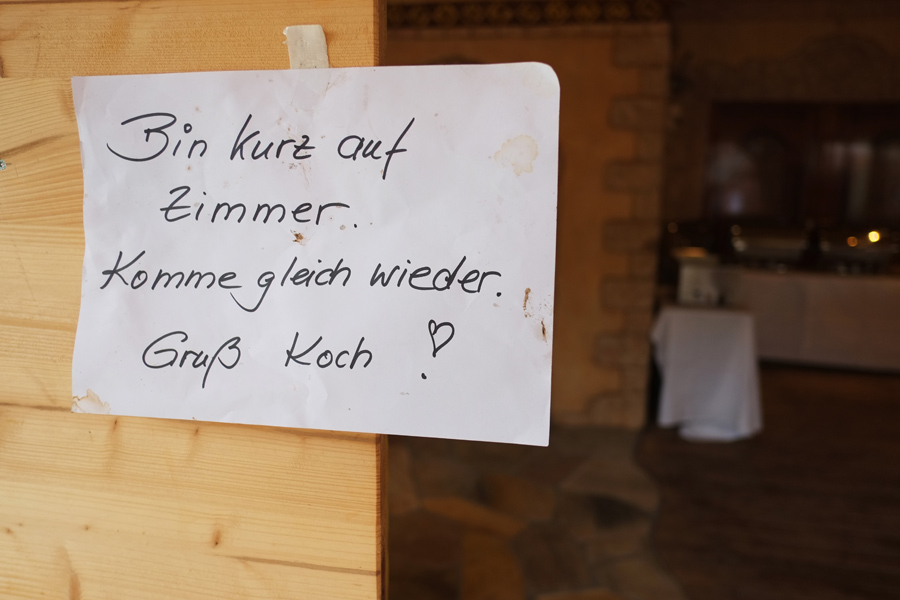 Bin kurz auf
Zimmer.
Komme gleich wieder.
Gruß Koch !